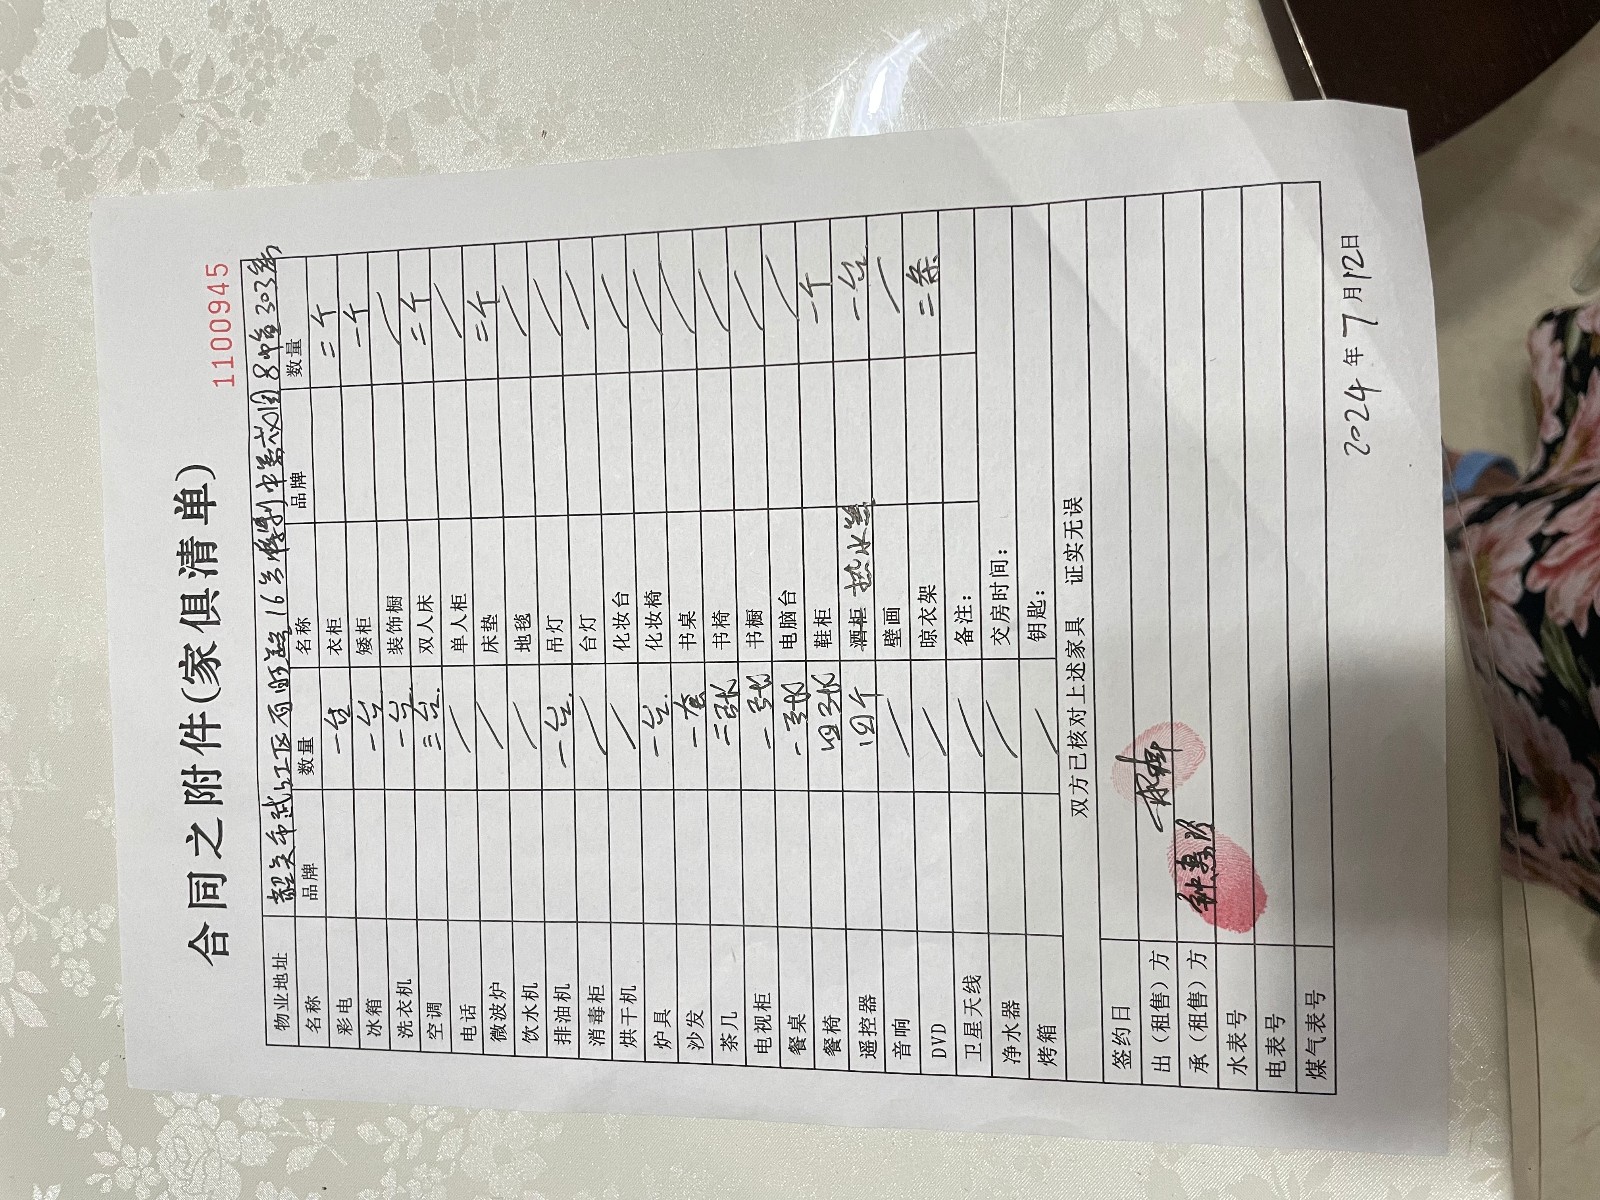 1100945
合同之附件(家俱清单)
物业地址 韶关市武江区百旺路16号 中 园8幢303房
名称 品牌 数量 名称 品牌 数量
彩电 一台 衣柜 二个
冰箱 一台 矮柜 一个
洗衣机 一台 装饰橱 /
空调 三台 双人床 二个
电话 / 单人柜 /
微波炉 / 床垫 二个
饮水机 / 地毯 /
排油机 一台 吊灯 /
消毒柜 / 台灯 /
烘干机 / 化妆台 /
炉具 一台 化妆椅 /
沙发 一套 书桌 /
茶几 二张 书椅 /
电视柜 一张 书橱 /
餐桌 一张 电脑台 /
餐椅 四张 鞋柜 一个
遥控器 四个 酒柜 热水器 一台
音响 / 壁画 /
DVD / 晾衣架 二条
卫星天线 / 备注:
净水器 / 交房时间:
烤箱 / 钥匙:
双方已核对上述家具 证实无误
签约日
出（租售）方
承（租售）方
水表号
电表号
煤气表号
2024年7月12日